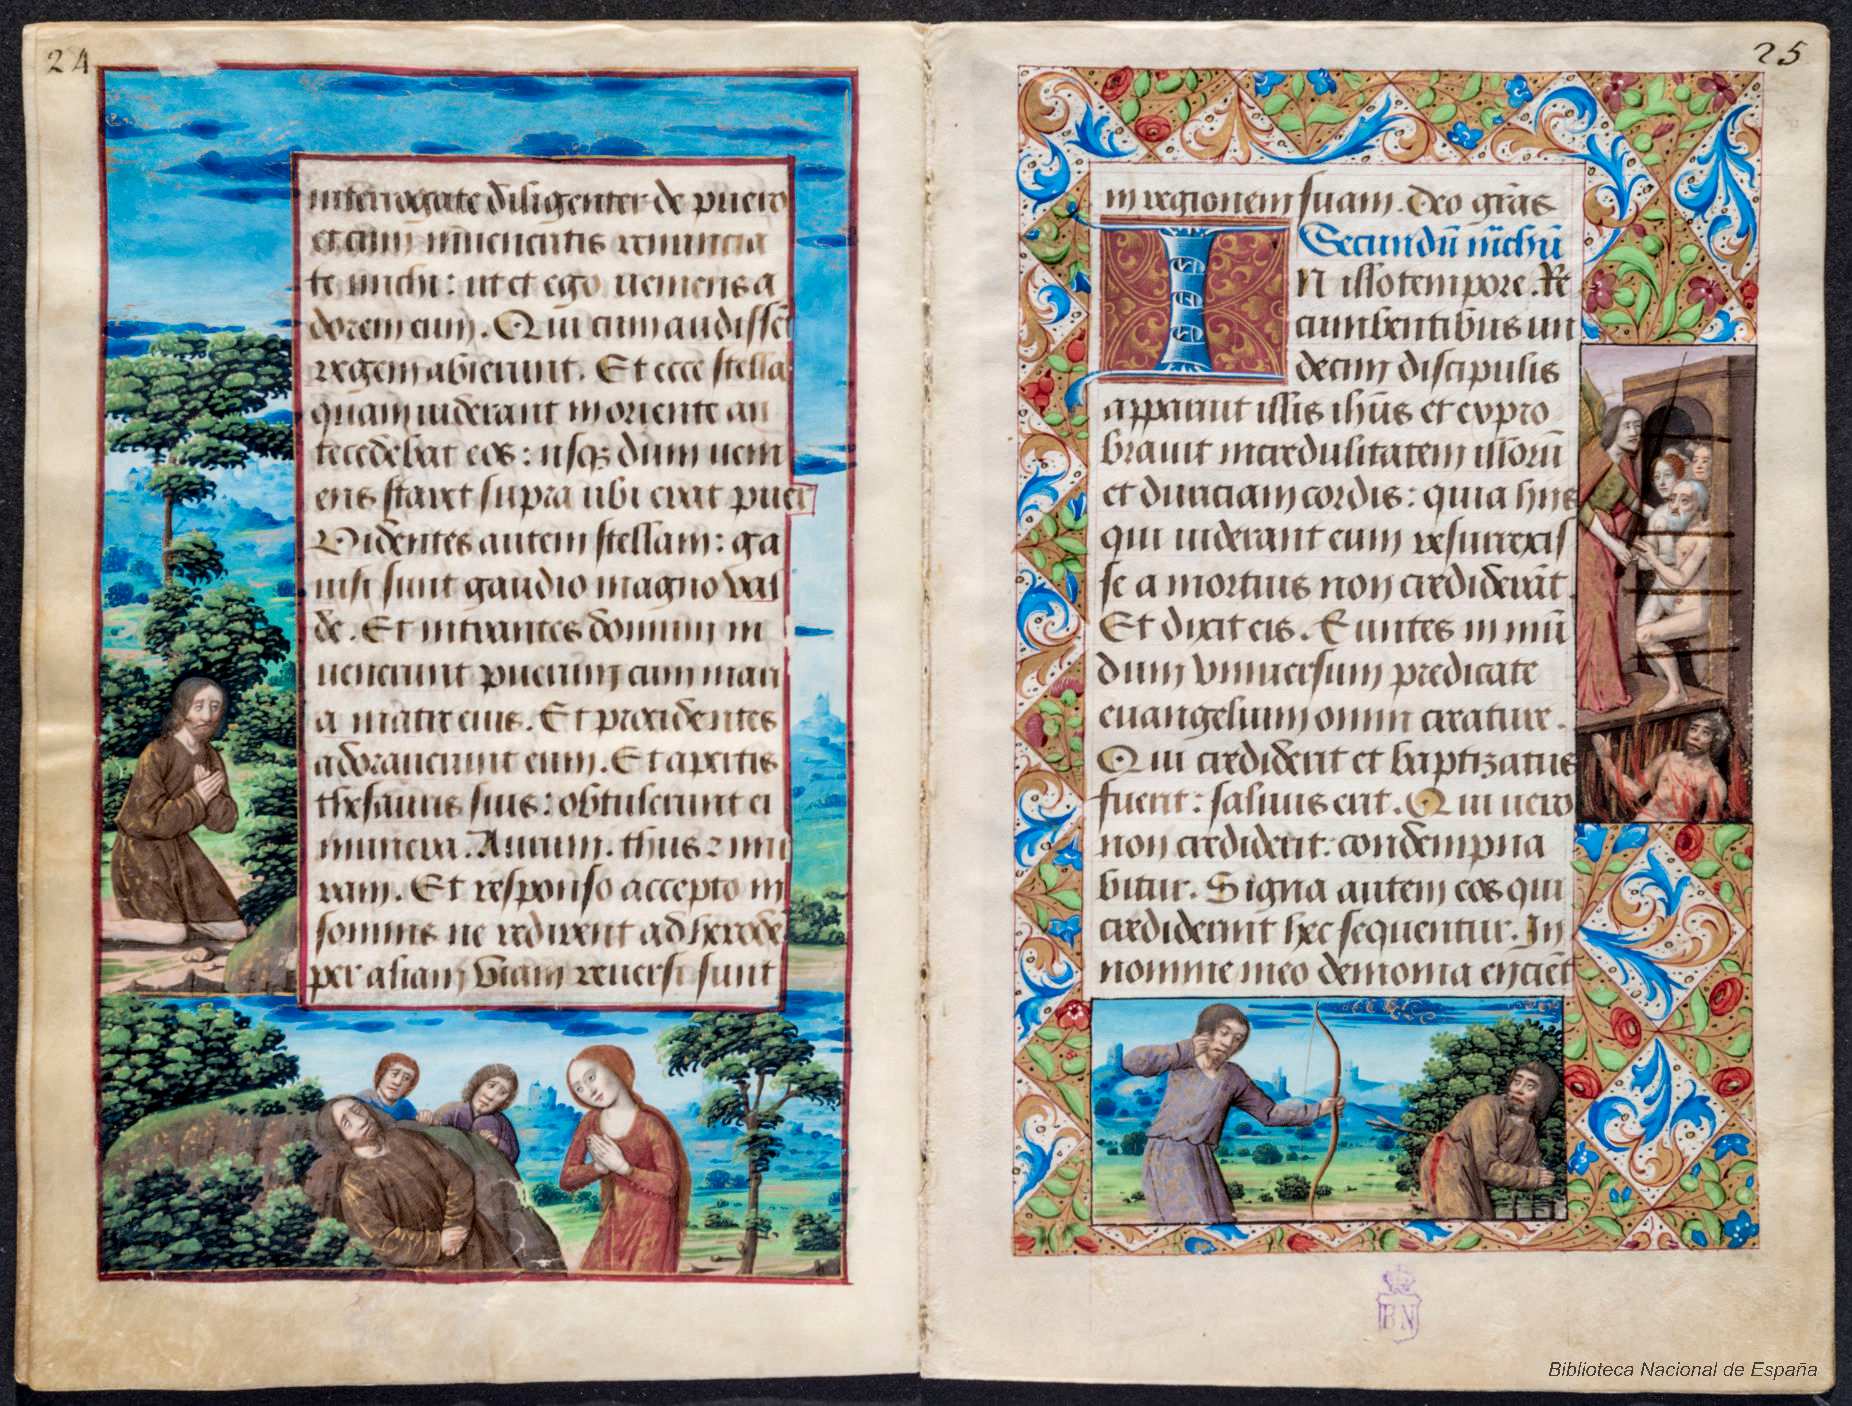 24
interrogate diligenter de puero
et cum inueneritis renuncia
te michi: ut et ego ueniens a
dorem eum. Qui cum audissẽt
regem abierunt. Et ecce stella
quam uiderant in oriente an
tecedebat eos: usqꝫ dum ueni
ens staret supra ubi erat puer
Videntes autem stellam: ga
uisi sunt gaudio magno val
de. Et intrantes domum in
uenerunt puerum cum mari
a matre eius. Et procidentes
adorauerunt eum. Et apertis
thesauris suis: obtulerunt ei
munera. Aurum. thus ⁊ mir
ram. Et responso accepto in
somnis ne redirent ad herodẽ
per aliam viam reuersi sunt
25
in regionem suam. Deo grãs
Secundũ
IN illo tempore. Re
cumbentibus un
decim discipulis
apparuit illis ihũs et expro
brauit incredulitatem illorũ
et duriciam cordis: quia hiis
qui uiderant eum resurrexis
se a mortuis non crediderũt.
Et dixit eis. Euntes in mũ
dum vniuersum predicate
euangelium omni creature.
Qui crediderit et baptizatus
fuerit: saluus erit. Qui uero
non crediderit: condempna
bitur. Signa autem eos qui
crediderint hec sequentur. In
nomine meo demonia eijciẽt
BN
Biblioteca Nacional de España